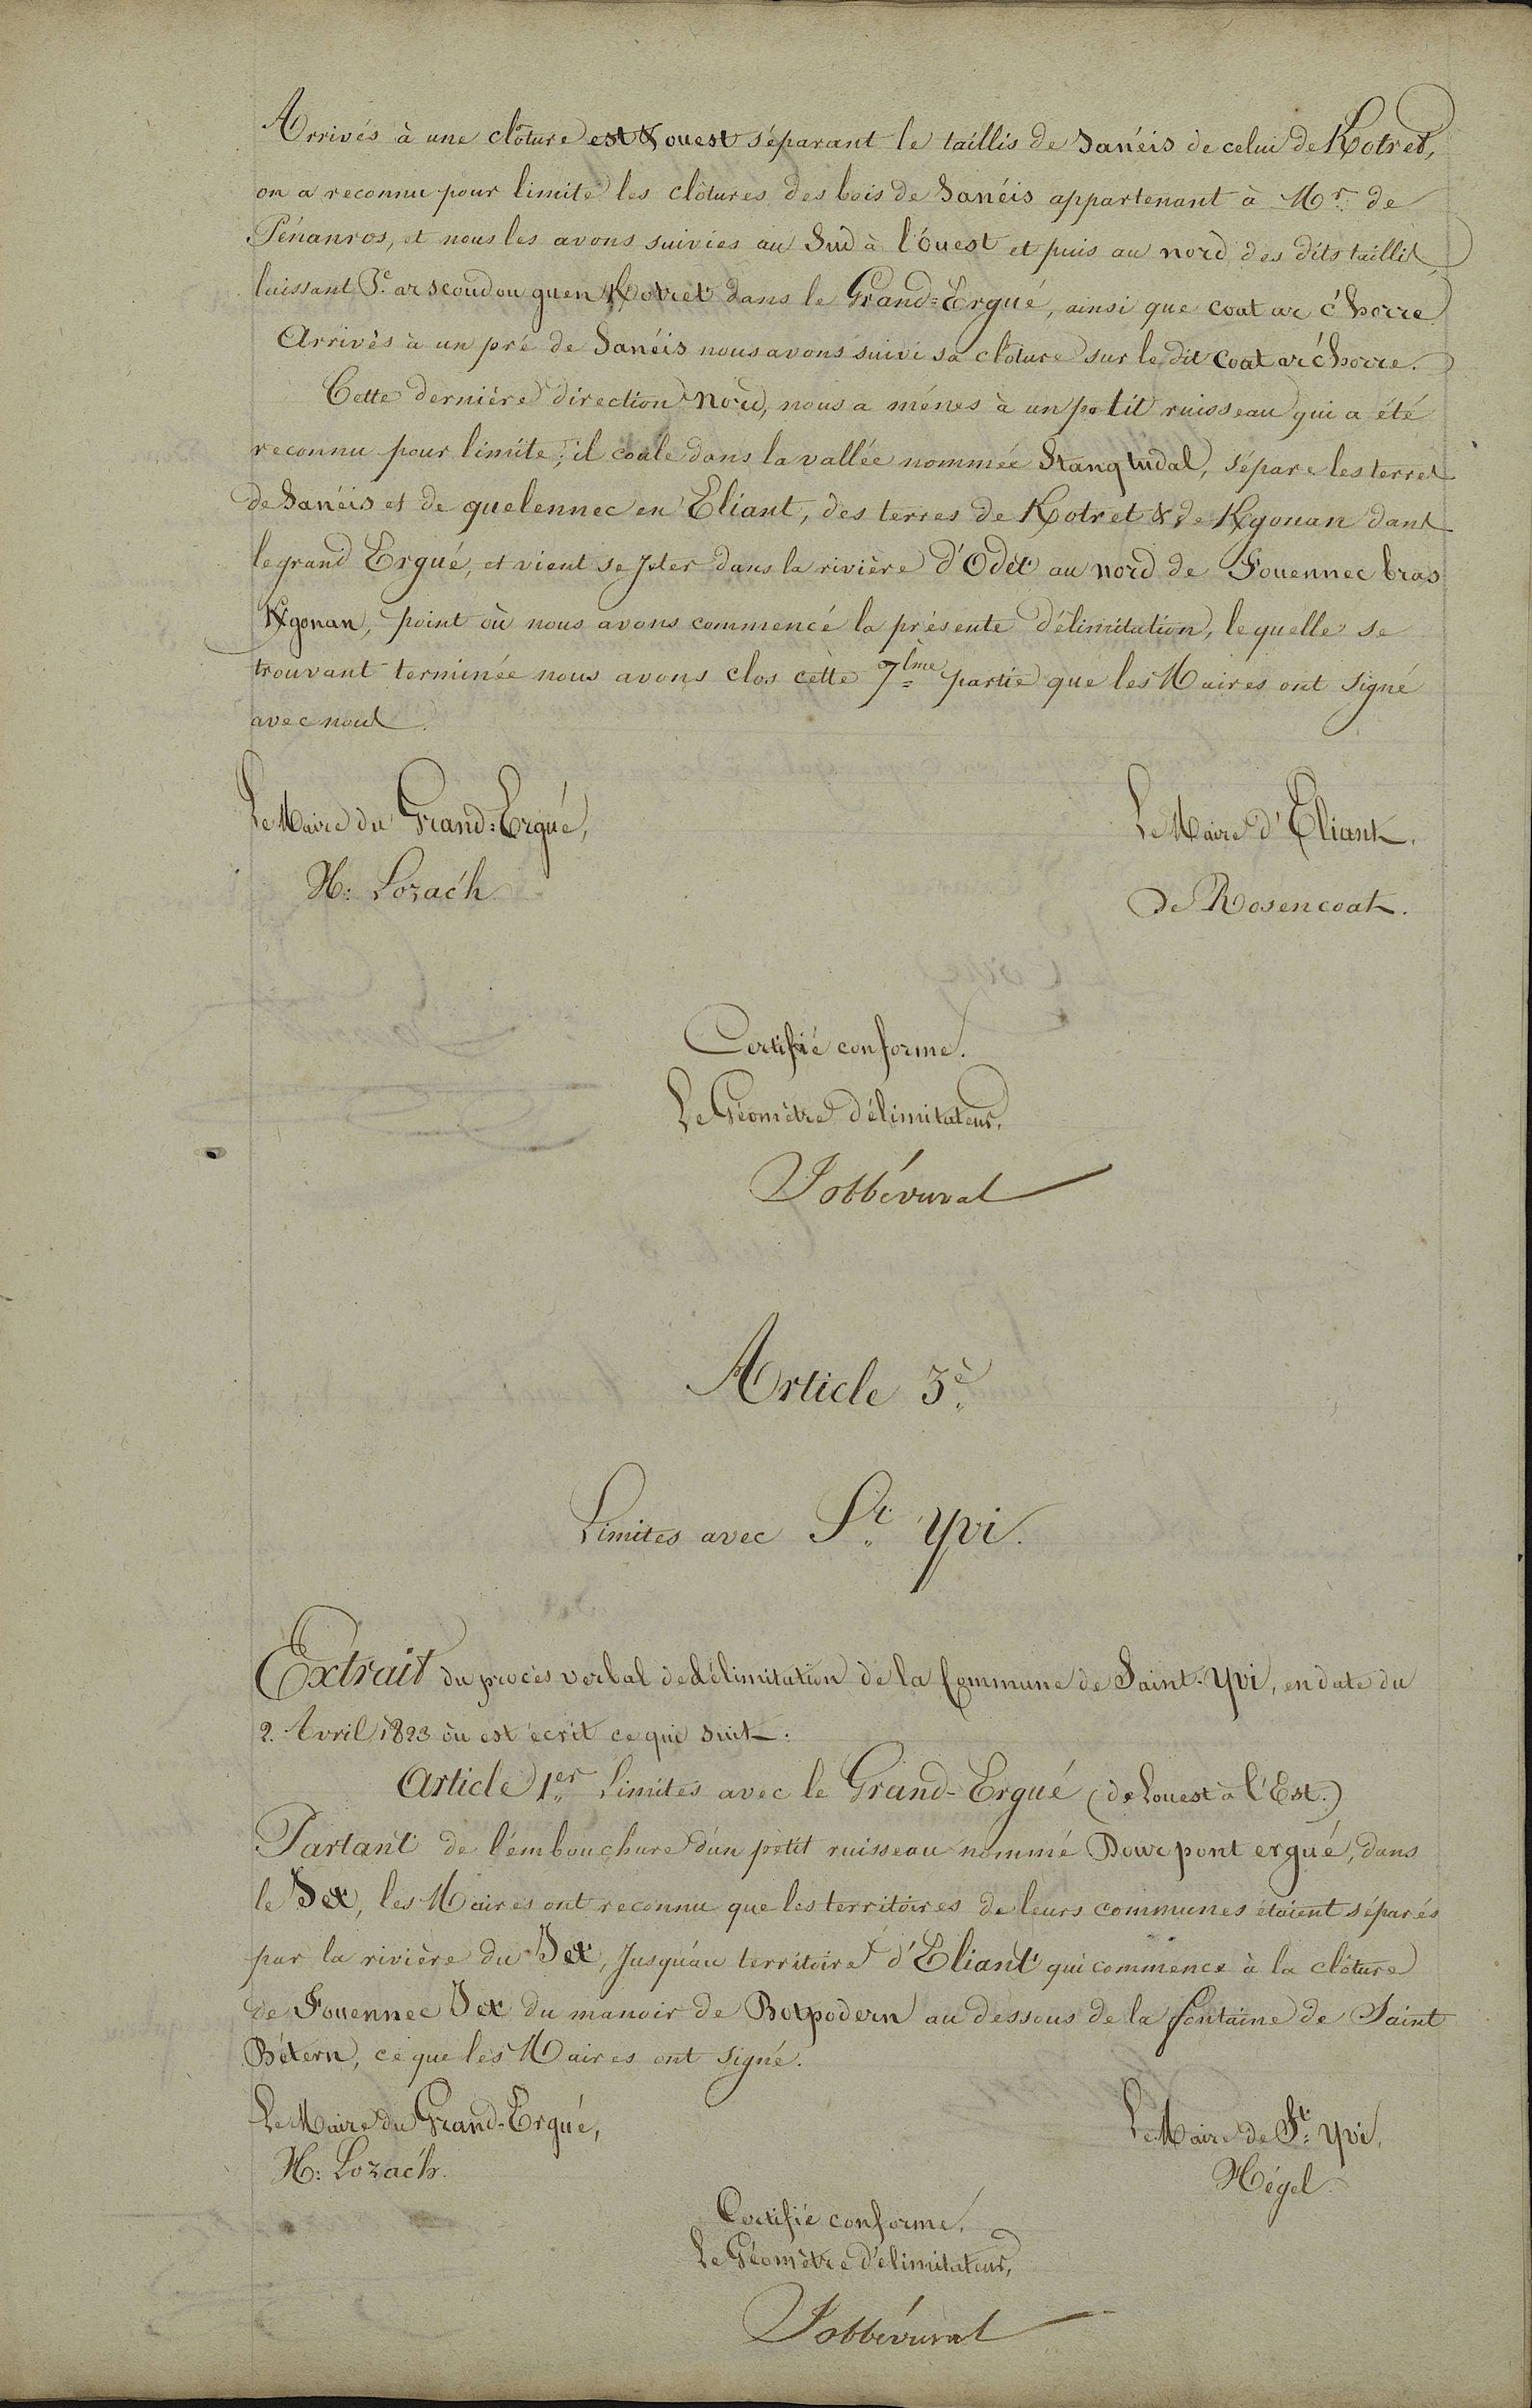 Arrivés à une clôture est & ouest séparant le taillis de Sanéis de celui de Kotret,
on a reconnu pour limite les clôtures des bois de Sanéis appartenant à Mr. de
Pénanros, et nous les avons suivies au Sud à l'Ouest et puis au nord des dits taillis
laissant Pc. ar scoudou guen Kotret dans le Grand=Ergué, ainsi que coat ar c'horre
Arrivés à un pré de Sanéis nous avons suivi sa clôture sur le dit Coat ar c'horre.
Cette dernière direction Nord, nous a ménes à un petit ruisseau qui a été
reconnu pour limite; il coule dans la vallée nommée Stang tudal, sépare les terres
de Sanéis et de quelennec en Eliant, des terres de Kotret & de Kgonan dans
le grand Ergué, et vient se Jeter dans la rivière d'Odet au nord de Fouennec bras
Kgonan, point où nous avons commencé la présente délimitation, lequelle se
trouvant terminée nous avons clos cette 7ème partie que les Maires ont signé
avec nous
Le Maire du Grand=Ergué,
Le Maire d'Eliant.
H: Lozac'h
De Rosencoat.
Certifié conforme.
Le Géomètre délimitateur.
Jobbévuval
Article 3e.
Limites avec St. Yvi.
Extrait du procès verbal de délimitation de la Commune de Saint-Yvi, en date du
2. Avril 1823 où est écrit ce qui suit:
Article 1er. Limites avec le Grand-Ergué (de Louest à l'Est.)
Partant de l'embouchure d'un petit ruisseau nommé Dour pont ergué, dans
le Jet, les Maires ont reconnu que les territoires de leurs communes étaient séparés
par la rivière du Jet, Jusqu'au territoire d'Eliant qui commence à la clôture
de Fouennec Jet du manoir de Botpodern au dessous de la fontaine de Saint
Bétern, ce que les Maires ont signé.
Le Maire du Grand-Ergué,
Le Maire de St: Yvi,
H: Lozac'h.
Hégel
Certifié conforme.
Le Géomètre délimitateur,
Jobbévuval